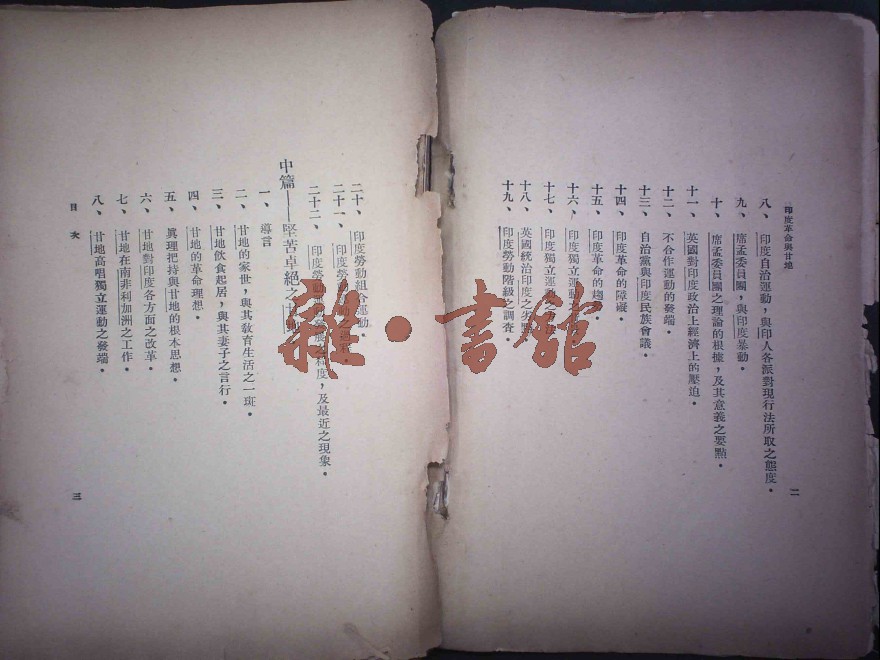 印度革命與甘地
八、印度自治運動，與印人各派對現行法所取之態度。
九、席孟委員團，與印度暴動。
十、席孟委員團之理論的根據，及其意義之要點。
十一、英國對印度政治上經濟上的壓迫。
十二、不合作運動的發端。
十三、自治黨與印度民族會議。
十四、印度革命的障礙。
十五、印度革命的趨
十六、印度獨立運動
十七、印度獨立運動之
十八、英國統治印度之劣點
十九、印度勞動階級之調查。
二
二十、印度勞動組合運動。
二十一、印度勞動
二十二、印度勞動 之程度，及最近之現象。
中篇——堅苦卓絕之甘地
一、導言
二、甘地的家世，與其敎育生活之一斑。
三、甘地飲食起居，與其妻子之言行。
四、甘地的革命理想。
五、眞理把持與甘地的根本思想。
六、甘地對印度各方面之改革。
七、甘地在南非利加洲之工作。
八、甘地高唱獨立運動之發端。
目次
三
雜·書館